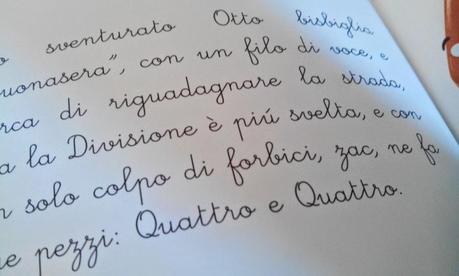 o sventurato Otto bisbiglia
uonasera”, con un filo di voce, e
rca di riguadagnare la strada,
a la Divisione è piú svelta, e con
n solo colpo di forbici, zac, ne fa
e pezzi: Quattro e Quattro.